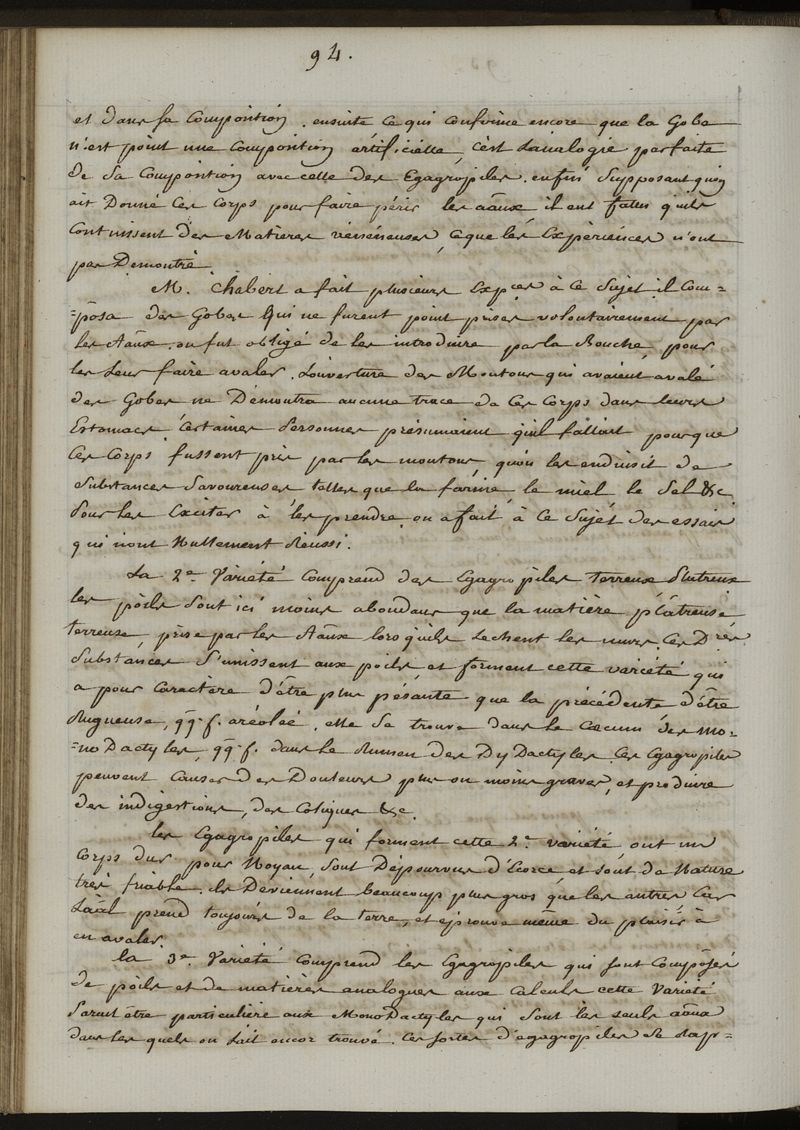 94.
et dans sa Composition, ensuite ce qui confirme encore que la Gobe
n'est point une composition artificielle, c'est Lanalogie parfaite
de sa Composition avec celle des Egagropiles. enfin Supposant qu'on
ait Donné ces Corps pour faire périr les aãux il eut fallu quils
Continssent des Matieres vénéneuses, ce que les Expèriences n'ont
pas Demontré.
M. Chabert a fait plusieurs Expces à ce Sujet il Com=
=posa des Gobes qui ne furent point prises volontairement par
les Aãux, on fut obligé de les introduire par la Bouche pour
les Leur faire avaler. L'ouverture des Moutons qui avaient avalé
des Gobes ne Démontra aucune trace de ces Corps dans leurs
Estomacs. Certaines Personnes présumaient qu'il fallait pour que
ces Corps fussent pris par les moutons, qu'on les enduisit de
Substances Savoureuses, telles que la farine, le miel le Sel &c
Pour les Exciter à les prendre, on a fait à ce Sujet des essais
qui n'ont Nullement Réussi.
La 2e. Variété Comprend des Egagropiles terreux
les poils Sont ici moins abondans que la matière plâtreuse,
terreuse, prise par les Aãux lorsquils Lechent les murs. Ces Dres
Substances S'unissent aux poils et forment cette variété qui
a pour caractère d'être plus pésante que la précédente d'être
Rugueuse, qq. f. aréolée, elle Se trouve dans le Cœcum des mo=
=noDactyles, qq. f. dans le Rumen des DyDactyles. Ces Egagropiles
peuvent Causer des Douleurs plus ou moins graves, et produire
des indigestions, des Coliques &c.
les Egagropiles qui forment cette 2e. variété, ont un
Corps dur pour Noyau, Sont Dépourvus d'écorce et Sont de Nature
très friable. ils Deviennent beaucoup plus gros que les autres car
Laãl prend toujours de la terre, et éprouve même du plaisir à
en avaler.
la 3e. Variété Comprend les Egagropiles qui sont Composés
de poils et de matières analogues aux Calculs cette Variété
Parait être particulière aux MonoDactyles qui Sont les seuls aãux
dans les quels on L'ait encor trouvé. Ces sortes d'egagropiles Se rap=